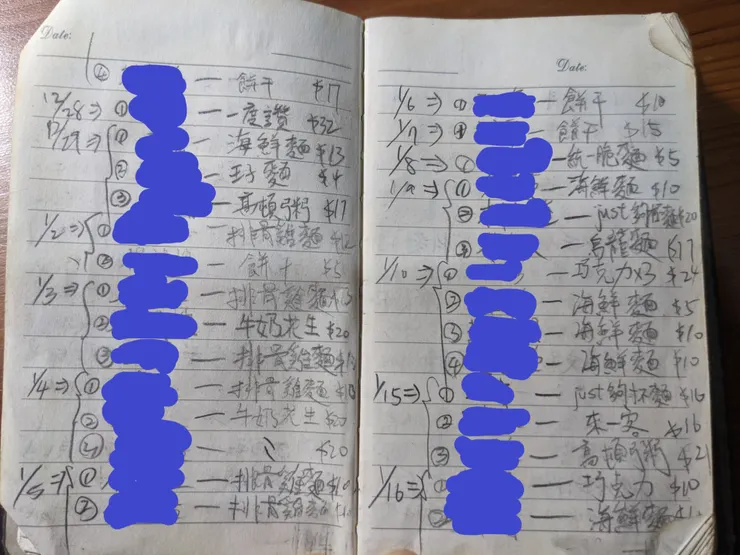 Date:
④ — 餅干 $17
12/28 ⇒ ① — 一度讚 $32
12/29 ⇒ ① — 海鮮麵 $13
② — 王子麵 $4
③ — 高頓粥 $17
1/2 ⇒ ① — 排骨雞麵 $12
② — 餅干 $5
1/3 ⇒ ① — 排骨雞麵
② — 牛奶花生 $20
③ — 排骨雞麵
1/4 ⇒ ① — 排骨雞麵
② — 牛奶花生 $20
③ — 〃 $20
1/5 ⇒ ① — 排骨雞麵 $10
② — 排骨雞麵
Date:
1/6 ⇒ ① — 餅干 $10
1/7 ⇒ ① — 餅干 $15
1/8 ⇒ ① — 統脆麵 $5
1/9 ⇒ ① — 海鮮麵 $10
② — just 夠杯麵 $20
③ — 烏龍麵 $17
1/10 ⇒ ① — 巧克力x3 $24
② — 海鮮麵 $5
③ — 海鮮麵 $10
④ — 海鮮麵 $10
1/15 ⇒ ① — just 夠杯麵 $16
② — 來一客 $16
③ — 高頓粥
1/16 ⇒ ① — 巧克力 $10
② — 海鮮麵